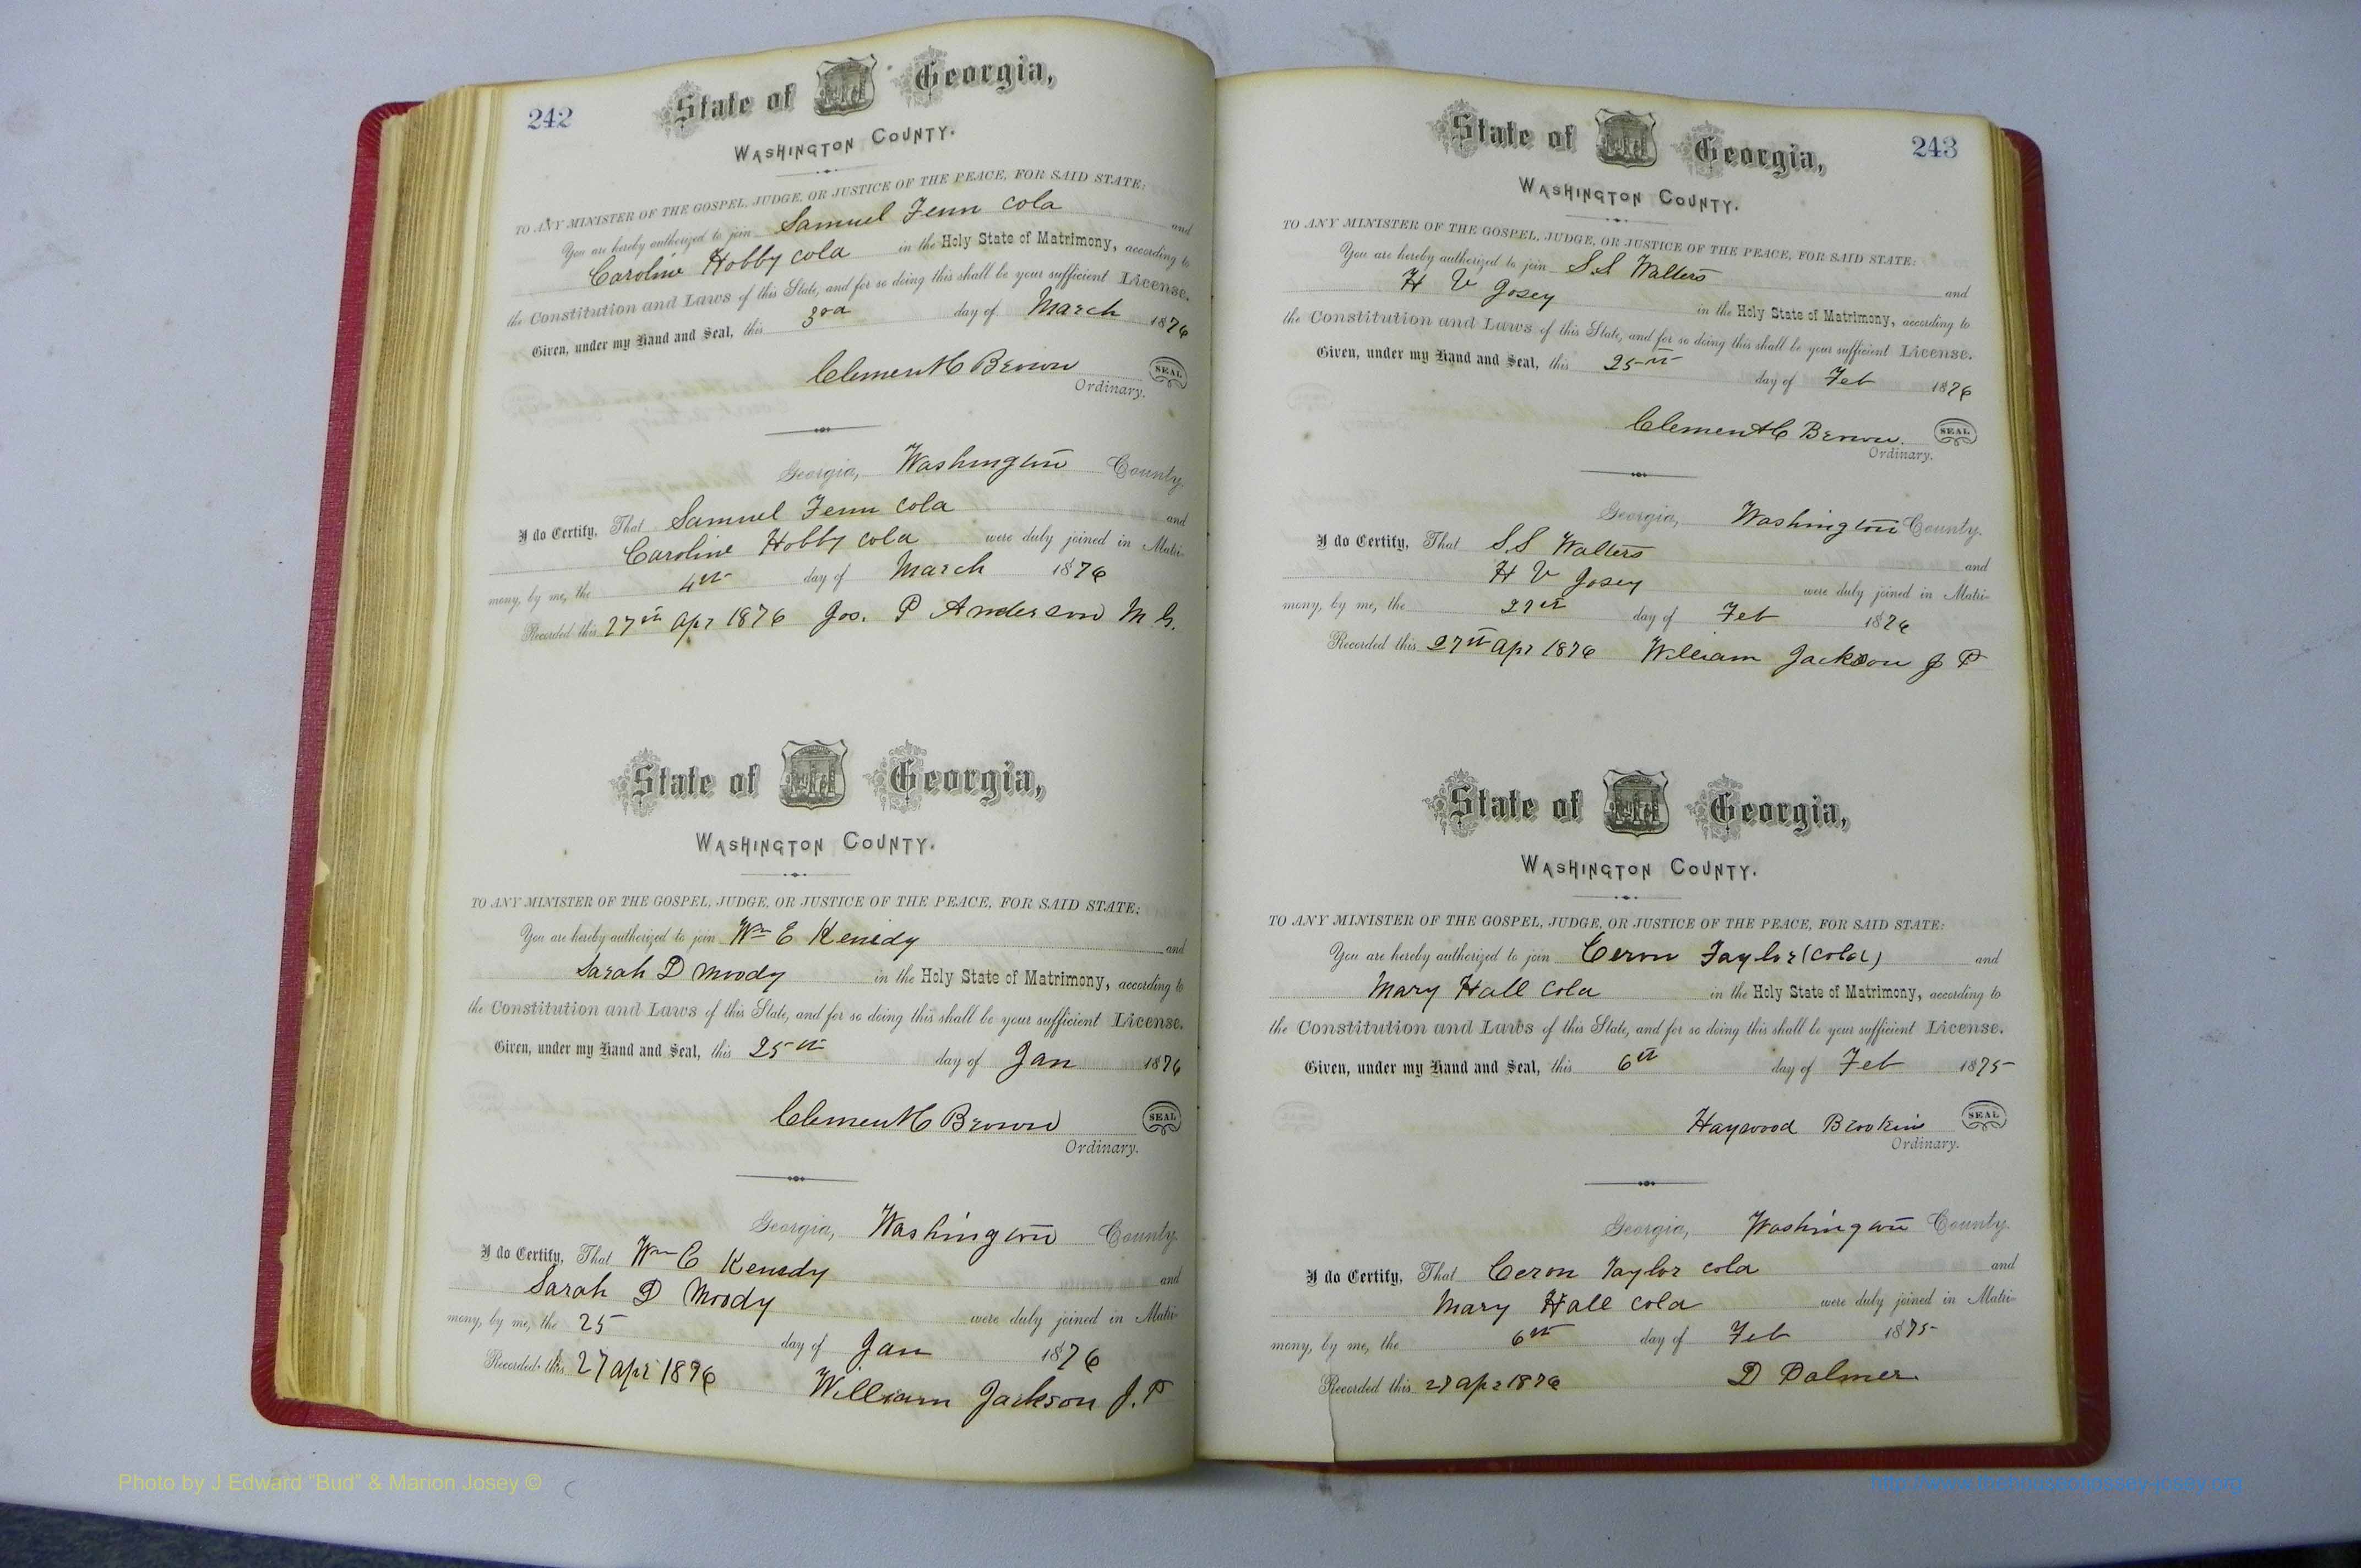 242
State of Georgia,
WASHINGTON COUNTY.
TO ANY MINISTER OF THE GOSPEL, JUDGE, OR JUSTICE OF THE PEACE, FOR SAID STATE:
You are hereby authorized to join Samuel Fenn Cold and
Caroline Hobby cold in the Holy State of Matrimony, according to
the Constitution and Laws of this State, and for so doing this shall be your sufficient License.
Given, under my Hand and Seal, this 3rd day of March 1876
Clement C Brown SEAL
Ordinary.
Georgia, Washington County.
I do Certify, That Samuel Fenn Cold and
Caroline Hobby Cold were duly joined in Matri-
mony, by me, the 4th day of March 1876
Recorded this 27th apr 1876 Jos. P Anderson M G.
State of Georgia,
WASHINGTON COUNTY.
TO ANY MINISTER OF THE GOSPEL, JUDGE, OR JUSTICE OF THE PEACE, FOR SAID STATE:
You are hereby authorized to join Wm E Kenedy and
Sarah D Moody in the Holy State of Matrimony, according to
the Constitution and Laws of this State, and for so doing this shall be your sufficient License.
Given, under my Hand and Seal, this 25th day of Jan 1876
Clement C Brown SEAL
Ordinary.
Georgia, Washington County.
I do Certify, That Wm E Kenedy and
Sarah D Moody were duly joined in Matri-
mony, by me, the 25 day of Jan 1876
Recorded this 27 apr 1876
William Jackson J. P
243
State of Georgia,
WASHINGTON COUNTY.
TO ANY MINISTER OF THE GOSPEL, JUDGE, OR JUSTICE OF THE PEACE, FOR SAID STATE:
You are hereby authorized to join S.S Walters and
H V Josey in the Holy State of Matrimony, according to
the Constitution and Laws of this State, and for so doing this shall be your sufficient License.
Given, under my Hand and Seal, this 25th day of Feb 1876
Clement C Brown. SEAL
Ordinary.
Georgia, Washington County.
I do Certify, That S.S Walters and
H V Josey were duly joined in Matri-
mony, by me, the 27th day of Feb 1876
Recorded this 27th apr 1876 William Jackson J P
State of Georgia,
WASHINGTON COUNTY.
TO ANY MINISTER OF THE GOSPEL, JUDGE, OR JUSTICE OF THE PEACE, FOR SAID STATE:
You are hereby authorized to join Ceron Taylor (Cold) and
Mary Hall Cold in the Holy State of Matrimony, according to
the Constitution and Laws of this State, and for so doing this shall be your sufficient License.
Given, under my Hand and Seal, this 6th day of Feb 1875
Haywood Brookin SEAL
Ordinary.
Georgia, Washington County.
I do Certify, That Ceron Taylor Cold and
Mary Hall Cold were duly joined in Matri-
mony, by me, the 6th day of Feb 1875
Recorded this 27 apr 1876 D Palmer.
Photo by J Edward "Bud" & Marion Josey ©